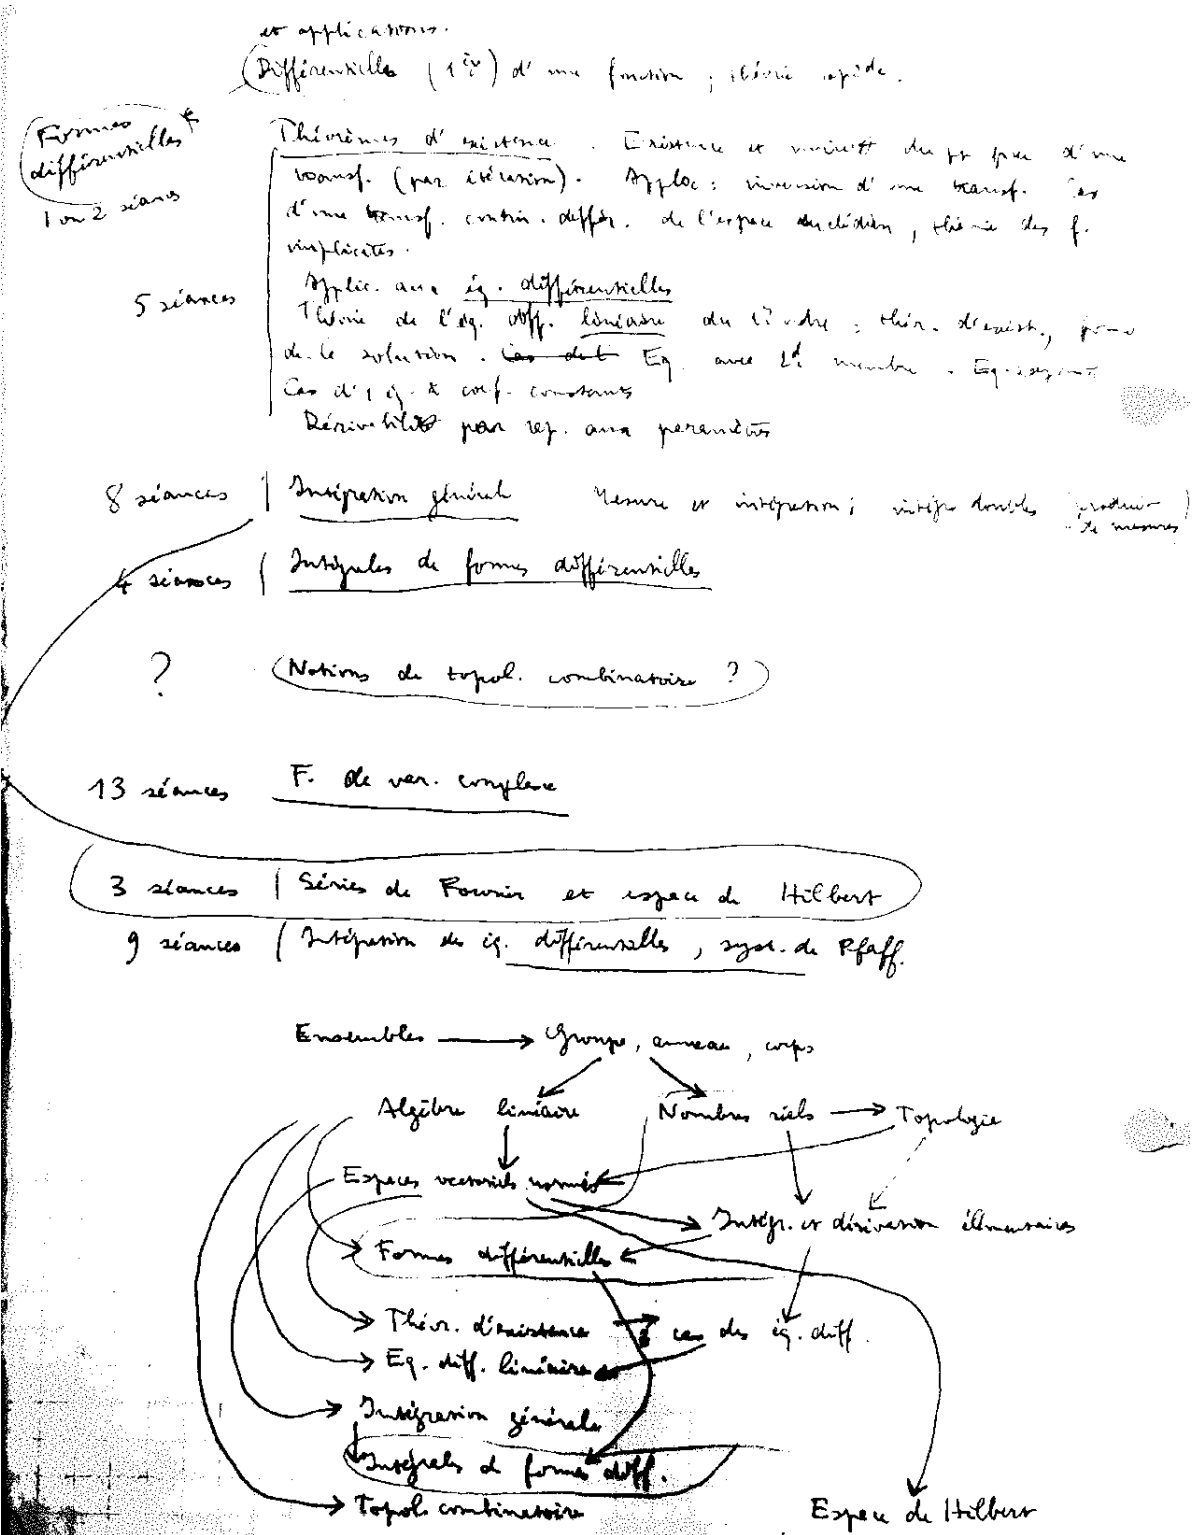 et applications.
Différentielles (1er) d'une fonction ; théorie rapide.
Formes
différentielles
1 ou 2 séances
Théorèmes d'existence. Existence et unicité du pt fixe d'une
transf. (par itération). Applic : inversion d'une transf. Cas
d'une transf. contin. différ. de l'espace euclidien, théorie des f.
implicites.
5 séances
Applic. aux éq. différentielles
Théorie de l'éq. diff. linéaire du 1er ordre ; théor. d'exist., forme
de la solution. Eq. avec 2d membre.
Cas d'1 éq. à coef. constants
Dérivabilité par rap. aux paramètres
8 séances | Intégration générale Mesure et intégration ; intégr. doubles (produit
de mesures)
4 séances | Intégrales de formes différentielles
? (Notions de topol. combinatoire ?)
13 séances F. de var. complexe
3 séances | Séries de Fourier et espace de Hilbert
9 séances | Intégration des éq. différentielles, syst. de Pfaff.
Ensembles → Groupe, anneau, corps
Algèbre linéaire Nombres réels → Topologie
Espaces vectoriels normés
Intégr. et dérivation élémentaires
Formes différentielles
Théor. d'existence cas des éq. diff.
Eq. diff. linéaires
Intégration générale
Intégrales de formes diff.
Topol. combinatoire
Espace de Hilbert